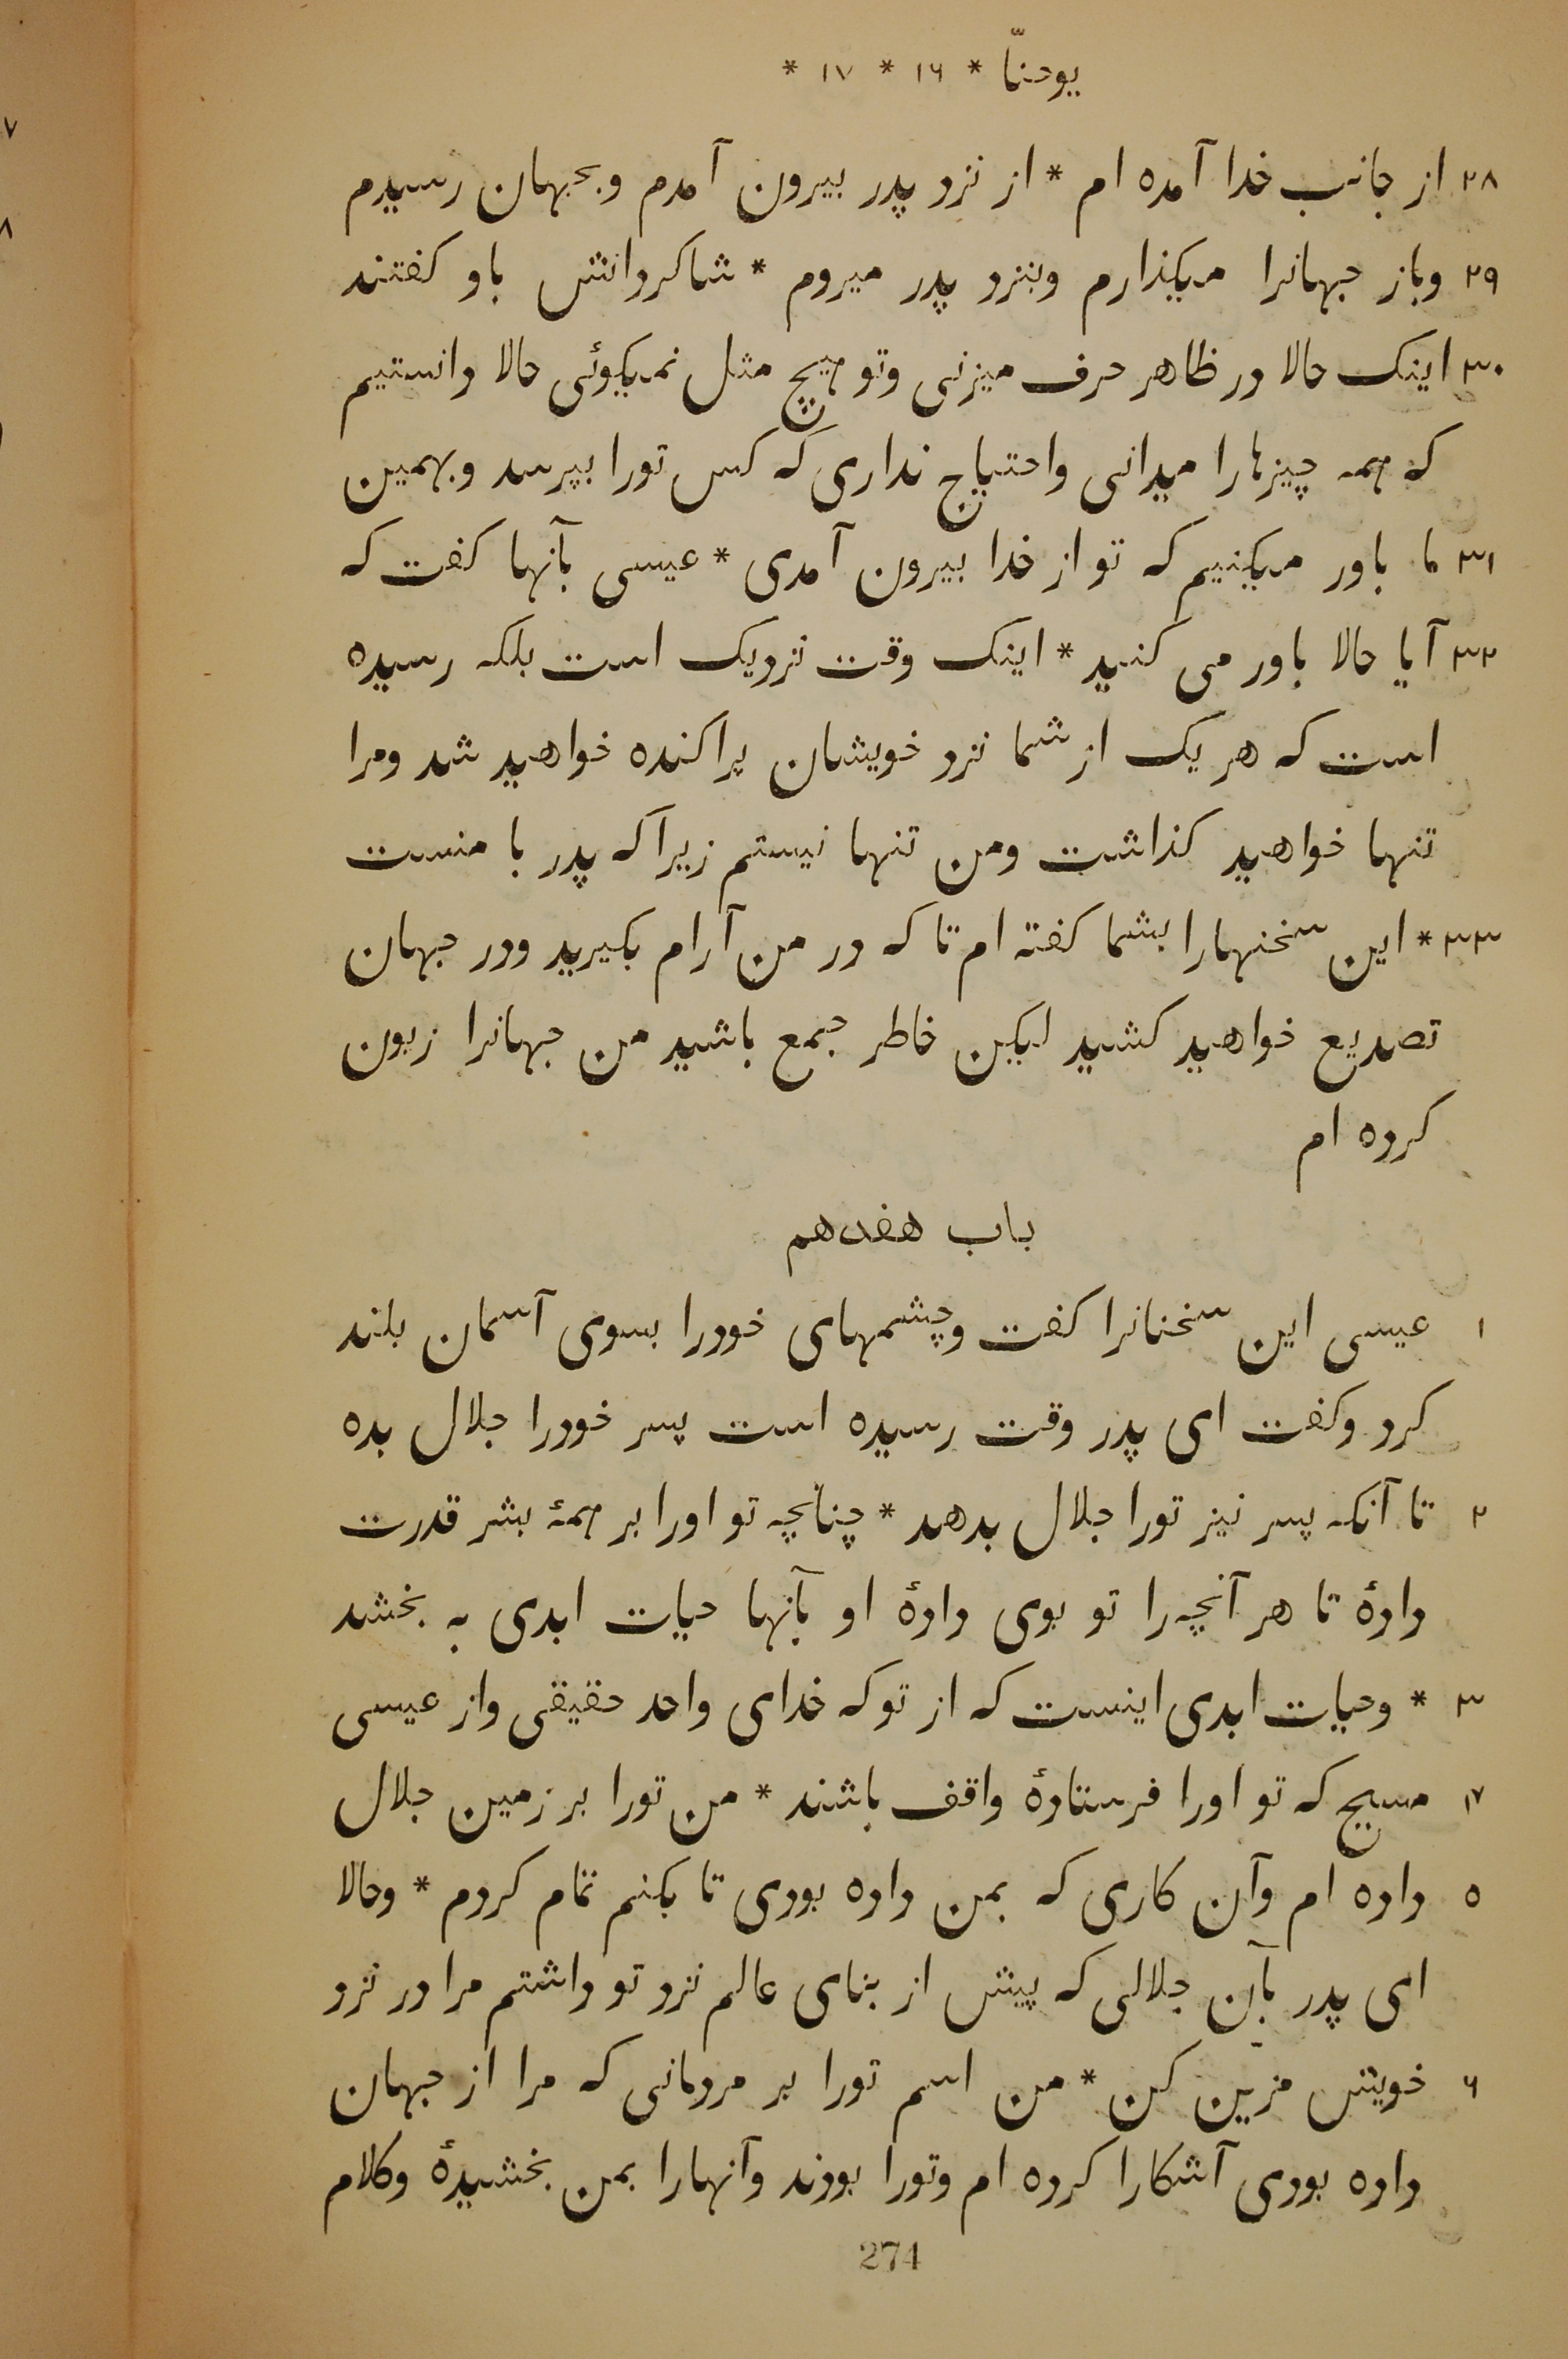 یوحنّا * ۱۶ * ۱۷ *
۲۸ از جانب خدا آمده ام * از نزد پدر بیرون آمدم وبجهان رسیدم
۲۹ وباز جهانرا میکذارم وبنزد پدر میروم * شاکردانش باو کفتند
۳۰ اینک حالا در ظاهر حرف میزنی وتو هیچ مثل نمیکوئی حالا دانستیم
که همه چیزهارا میدانی واحتیاج نداری که کس تورا بپرسد وبهمین
۳۱ ما باور میکنیم که تو از خدا بیرون آمدی * عیسی بآنها کفت که
۳۲ آیا حالا باور می کنید * اینک وقت نزدیک است بلکه رسیده
است که هر یک از شما نزد خویشان پراکنده خواهید شد ومرا
تنها خواهید کذاشت ومن تنها نیستم زیرا که پدر با منست
۳۳ * این سخنهارا بشما کفته ام تا که در من آرام بکیرید ودر جهان
تصدیع خواهید کشید لیکن خاطر جمع باشید من جهانرا زبون
کرده ام
باب هفدهم
۱ عیسی این سخنانرا کفت وچشمهای خودرا بسوی آسمان بلند
کرد وکفت ای پدر وقت رسیده است پسر خودرا جلال بده
۲ تا آنکه پسر نیز تورا جلال بدهد * چنانچه تو اورا بر همهٔ بشر قدرت
دادهٔ تا هر آنچه را تو بوی دادهٔ او بآنها حیات ابدی به بخشد
۳ * وحیات ابدی اینست که از تو که خدای واحد حقیقی واز عیسی
۱۷ مسیح که تو اورا فرستادهٔ واقف باشند * من تورا بر زمین جلال
۵ داده ام وآن کاری که بمن داده بودی تا بکنم تمام کردم * وحالا
ای پدر بآن جلالی که پیش از بنای عالم نزد تو داشتم مرا در نزد
۶ خویش مزین کن * من اسم تورا بر مردمانی که مرا از جهان
داده بودی آشکارا کرده ام وتورا بودند وآنهارا بمن بخشیدهٔ وکلام
274